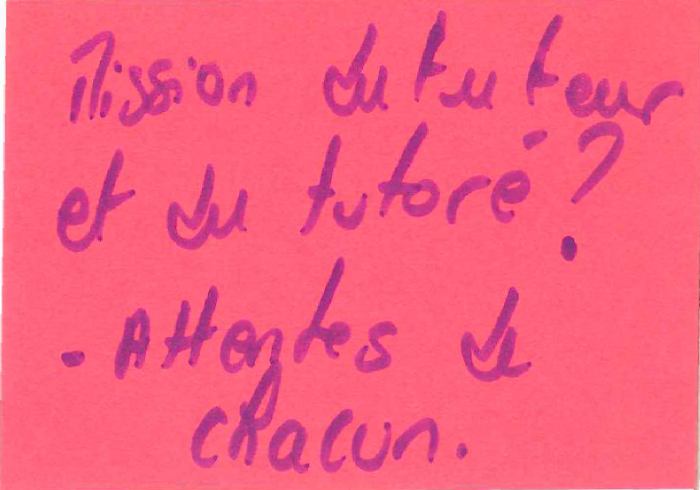 Mission du tuteur
et du tutoré ?
- Attentes de
chacun.